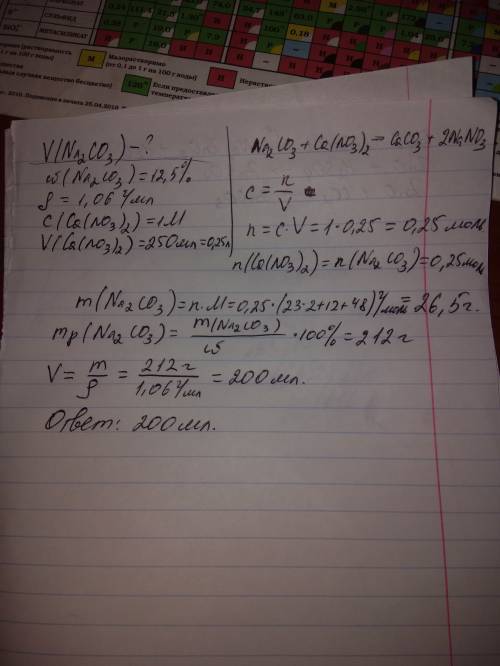 Малорастворимо
(от 0,1 до 1 г на 100 г воды)
V(Na2CO3) - ?
ω(Na2CO3) = 12,5%
ρ = 1,06 г/мл
C(Ca(NO3)2) = 1М
V(Ca(NO3)2) = 250мл = 0,25л
Na2CO3 + Ca(NO3)2 = CaCO3 + 2NaNO3
c = n/V
n = c·V = 1·0,25 = 0,25 моль
n(Ca(NO3)2) = n(Na2CO3) = 0,25 моль
m(Na2CO3) = n·M = 0,25·(23·2+12+48) г/моль = 26,5 г.
mр(Na2CO3) = m(Na2CO3)/ω ·100% = 212 г
V = m/ρ = 212 г/1,06 г/мл = 200 мл.
Ответ: 200 мл.